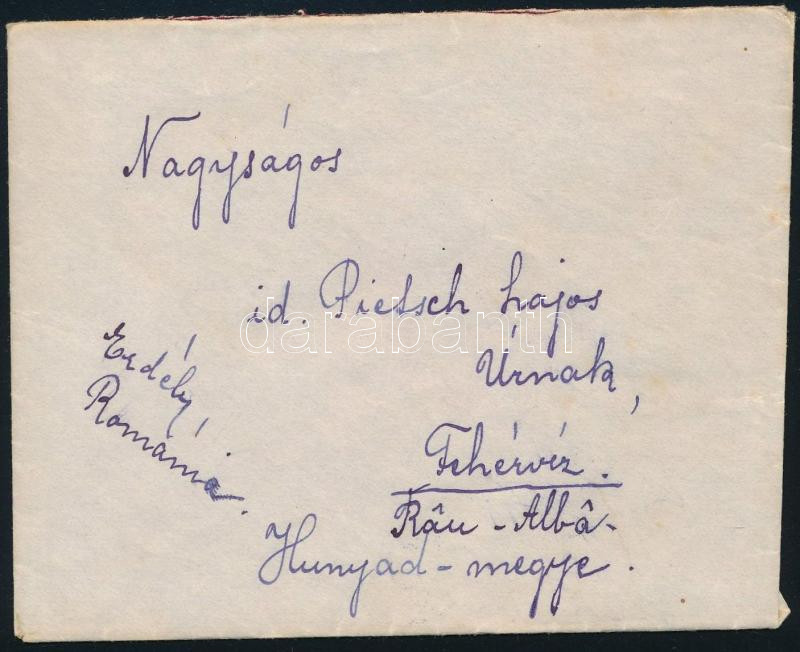 Nagyságos
id. Pietsch Lajos
Úrnak,
Fehérvíz.
Râu - Albâ -
Hunyad - megye.
Erdély,
Románia.
darabanth